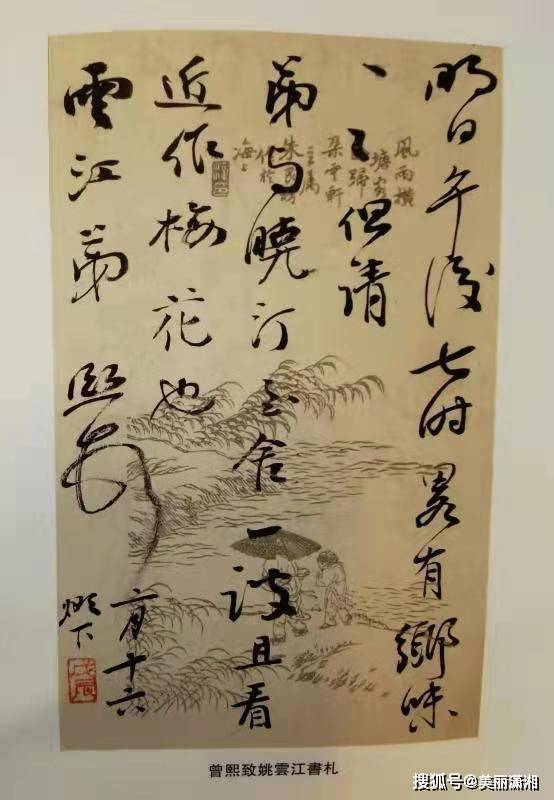 明日午後七时畧有鄉味
但請
弟与曉汀至舍一談且看
近作梅花也
雲江弟 熙頓
十六
燈下
戊辰
風雨橫
塘
歸
朵雲軒
主屬
作於
海上
曾熙致姚雲江書札
搜狐号@美丽潇湘